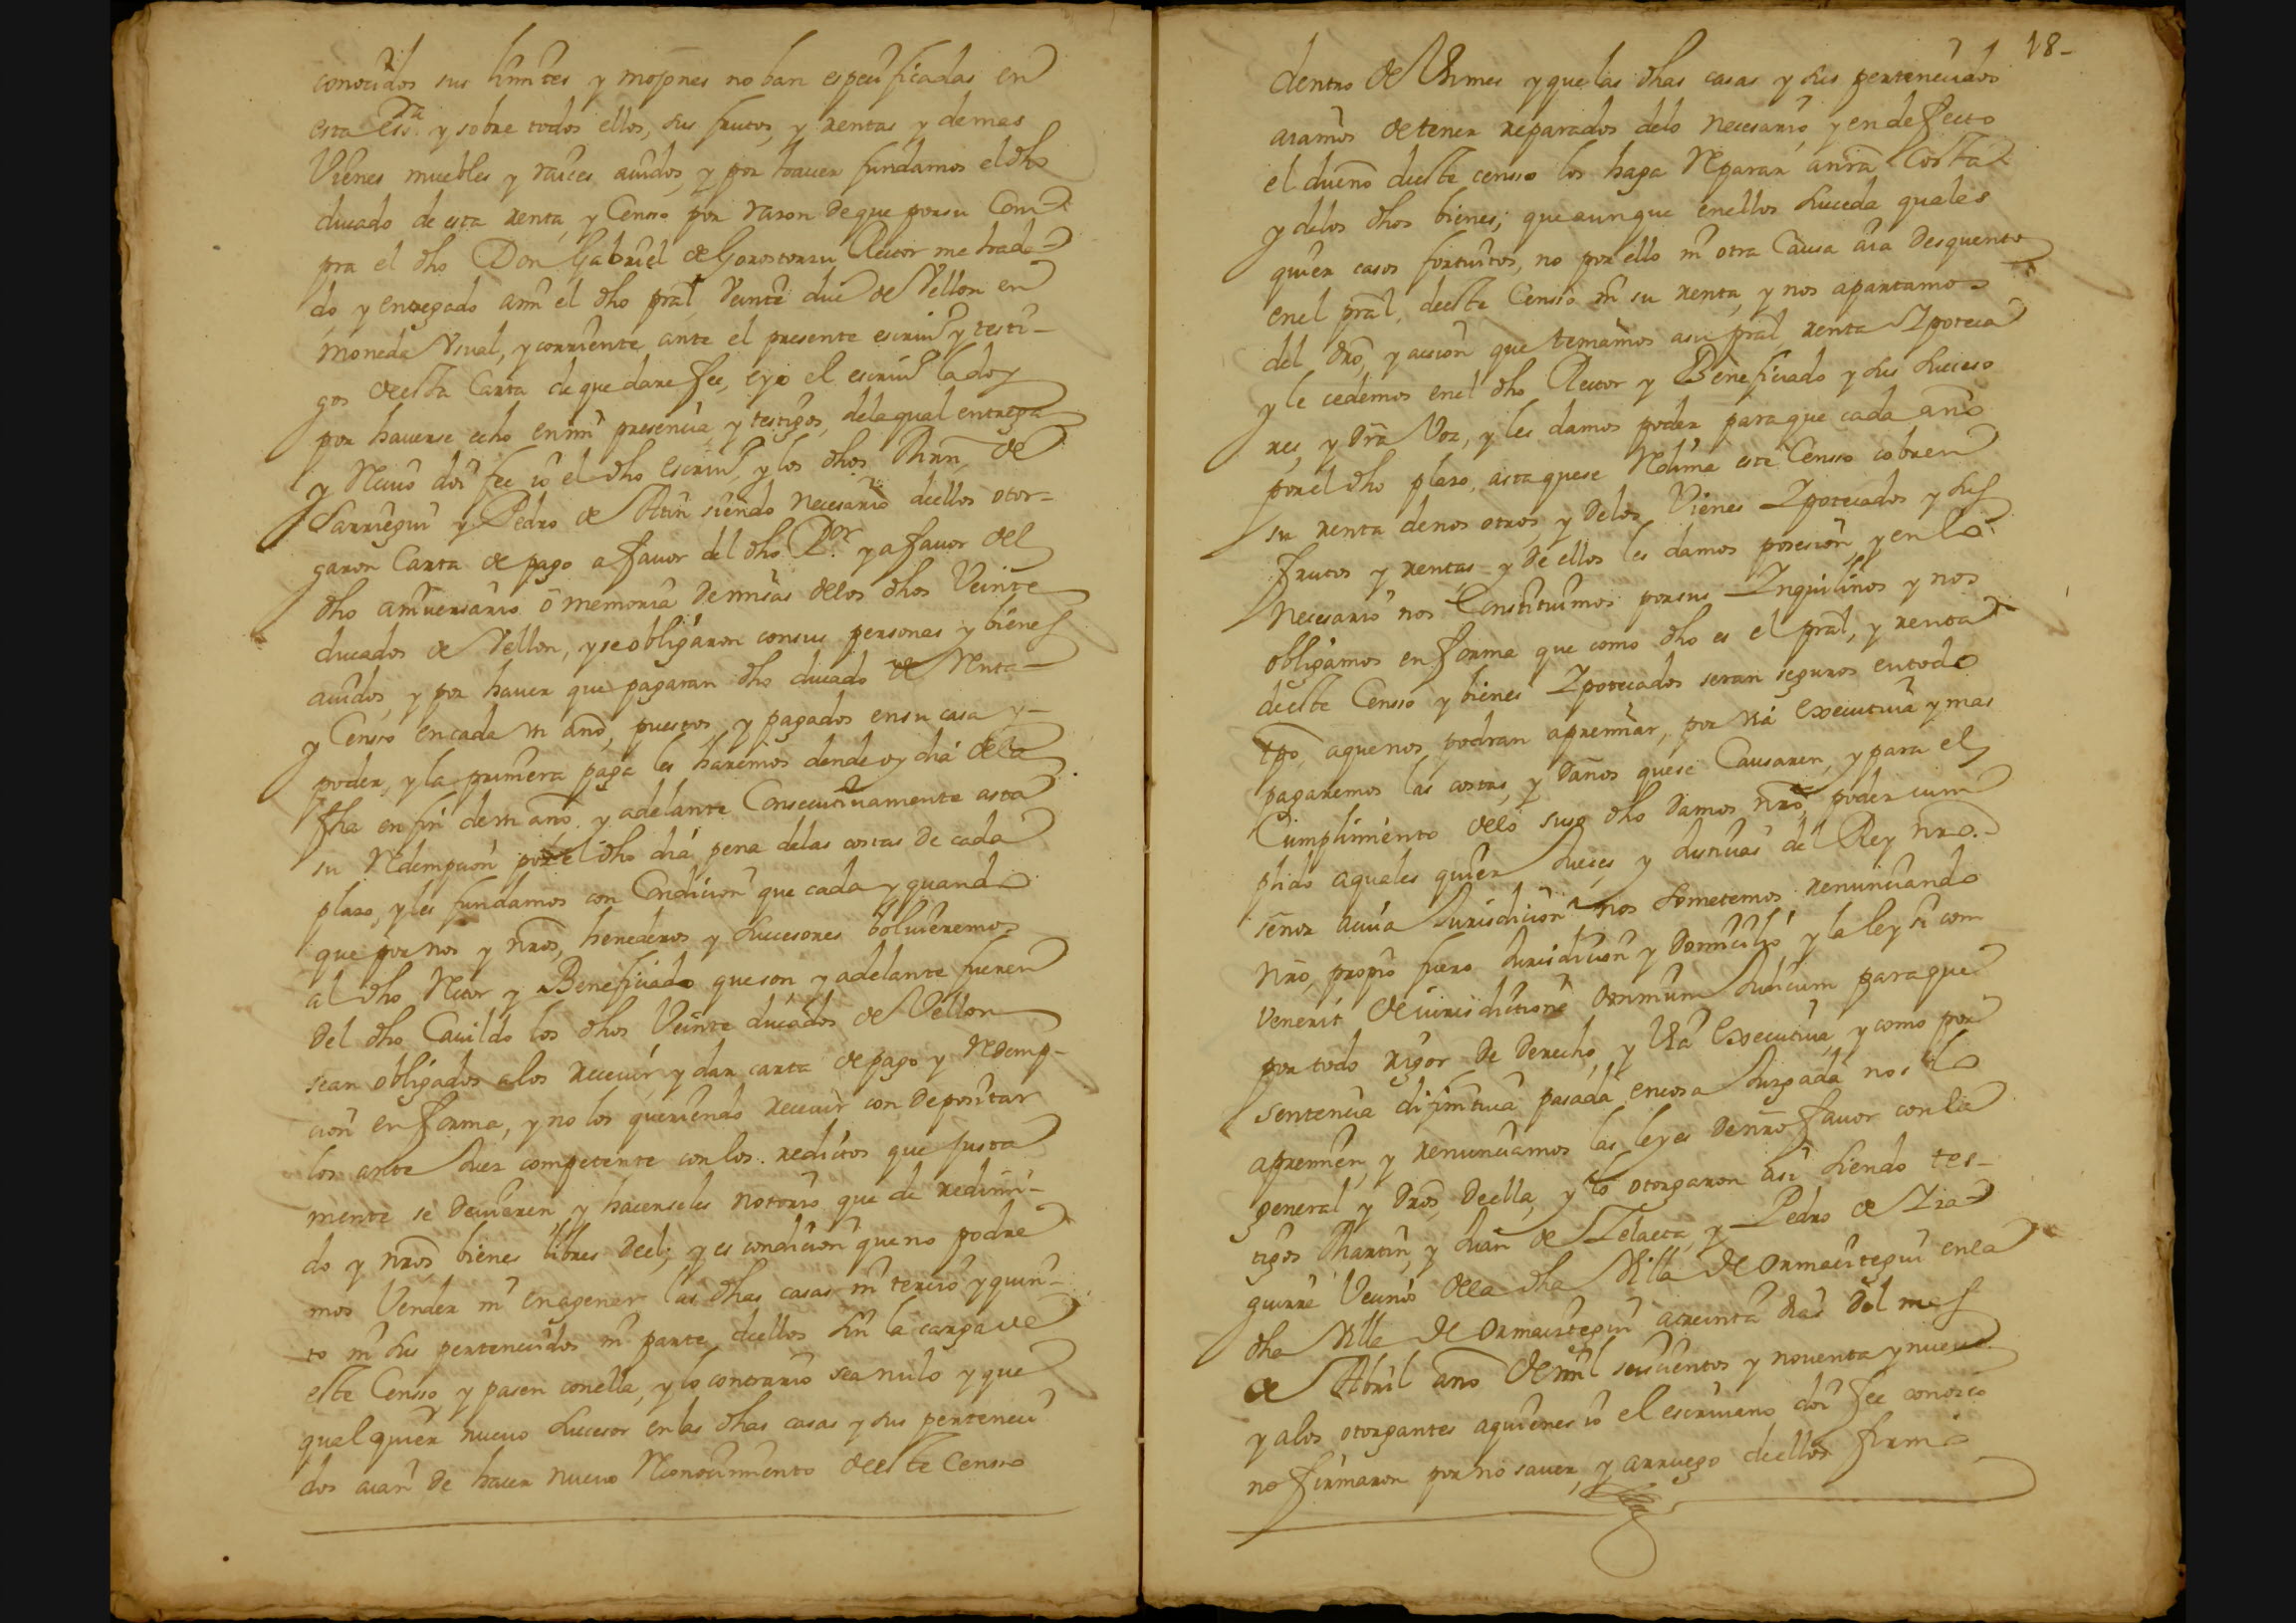 conocidos sus limites y mojones no ban especificadas en
esta essra y sobre todos ellos, sus frutos, y rentas y demas
Vienes muebles y raices auidos, y por hauer fundamos el dho
ducado de esta renta, y Censso por rason de que por su Com-
pra el dho Don Gabriel de Gorostorzu Rector me ha da-
do y entregado ami el dho pral Veinte duc de Vellon en
moneda Vsual, y corriente ante el presente escriu.º y testi-
gos deesta Carta de que dare fee, e yo el escriu.º la doy
por hauerse echo en mi presencia y testigos, dela qual entrega
y Reciuo doi fee io el dho escriu.º, y los dhos Mrn, de
Sarriegui y Pedro de Atin siendo necesario deellos otor-
garon Carta de pago a fauor del dho R.or y a fauor del
dho aniuersario o memoria de missas delos dhos Veinte
ducados de Vellon, y se obligaron con sus personas y bienes
auidos, y por hauer que pagaran dho ducado de Renta
y Censso en cada vn año, puestos, y pagados en su casa y
poder, y la primera paga les haremos dende oy dia dela
fha en fin de vn año y adelante Consecutiuamente asta
su Redempcion por el dho dia pena delas costas de cada
plaso, y les fundamos con Condicion que cada y quando
que por nos y nros, herederos y Successores bolvieremos
al dho Retor y Beneficiado que son y adelante fueren
del dho Cauildo los dhos Veinte ducados de Vellon
sean obligados alos receuir y dar carta de pago y Redemp-
cion en forma, y no los queriendo receuir con depositar
los ante Juez competente con los reditos que justa
mente se deuieren y hacerseles notorio que de redimi-
do y nros bienes libres deel; y es condicion que no podre
mos Vender ni enagenar las dhas casas ni tercio y quin-
to ni sus pertenecidos ni parte deellos sin la carga de
este Censso y pasen conella, y lo contrario sea nulo y que
qualquier nuevo Sucesor en las dhas casas y sus perteneci
dos aian de hacer nueuo Reconocimiento deeste Censso
18-
dentro de Vn mes y que las dhas casas y sus pertenecidos
aiamos de tener reparados delo necesario, y en defecto
el dueño deeste censso los haga Reparar anra Costa
y delos dhos bienes; que aunque enellos Suceda quales
quier casos fortuitos, no por ello ni otra Causa aia desquento
enel pral, deeste Censso ni su renta, y nos apartamos
del dro, y accion que teniamos asu pral, renta Ipoteca
y le cedemos enel dho Rector y Beneficiado y sus Succeso
res, y dra Voz, y les damos poder para que cada año
por el dho plaso, asta quese Redima este Censso cobren
su renta de nos otros, y delos Vienes Ipotecados y sus
frutos y rentas y de ellos les damos posesion, y en lo
necesario nos Constituimos por sus Inquilinos y nos
obligamos en forma que como dho es el pral, y renta
deeste Censso y bienes Ipotecados seran seguros en todo
tpo, aque nos, podran apremiar, por via executiua y mas
pagaremos las costas, y daños quese Causaren, y para el
Cumplimiento delo suso dho damos nro, poder cum
plido aquales quier Jueces, y Justicias del Rey nro.
señor acuia Jurisdicion nos Sometemos renunciando
nro, propio fuero Jurisdicion y Domicilio y la ley si com
venerit de iurisdictione omnium Judicum para que
por todo rigor de derecho, y Via executiua, y como por
sentencia difinitiua pasada en cosa Jusgada nos lo
apremien, y renunciamos las leyes de nro fauor con la
general y dros deella, y lo otorgaron asi siendo tes-
tigos Martin, y Juan de Telaeta y Pedro de Iza-
guirre Vecinos dela dha Villa de Ormaiztegui enla
dha Villa de Ormaiztegui a treinta dias del mes
de Abril año de mil seiscientos y nouenta y nueue
y alos otorgantes aquienes io el escriuano doi fee conosco
no firmaron por no sauer, y a rruego deellos firmo